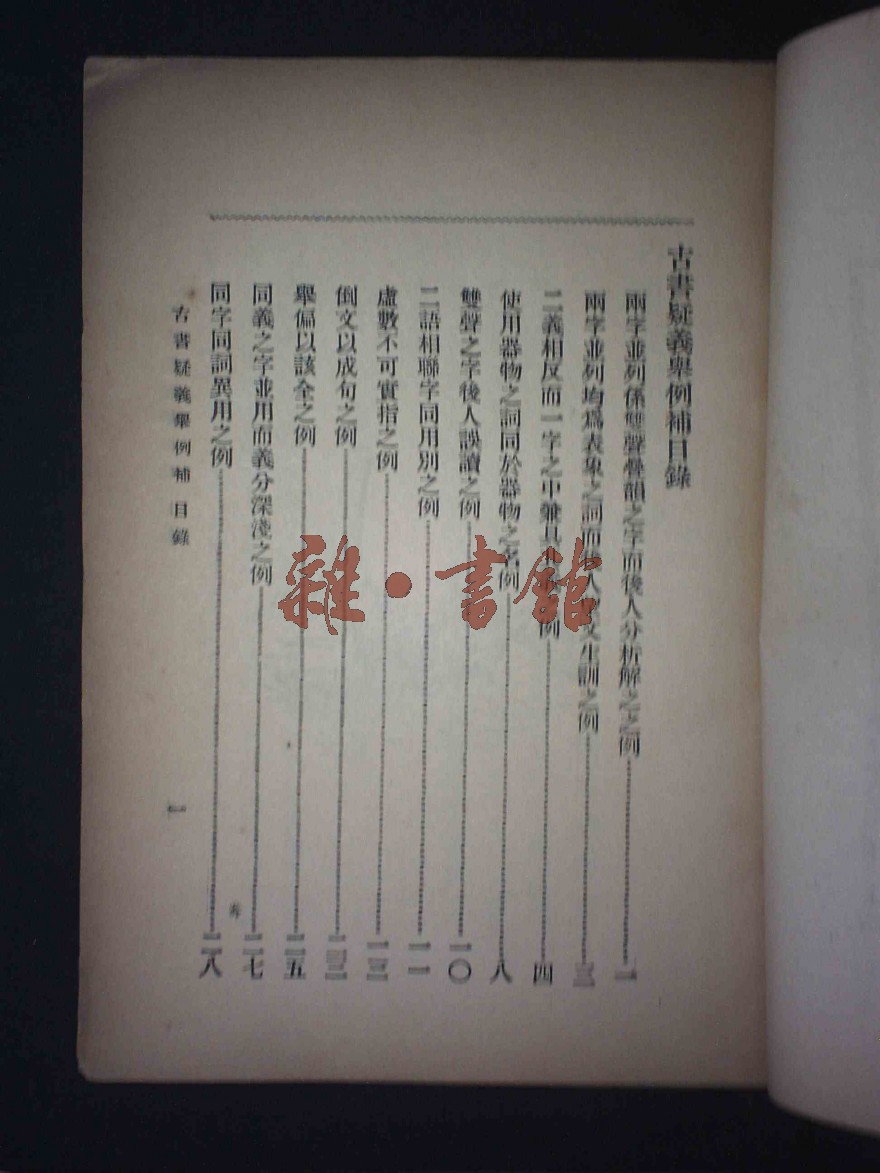 古書疑義舉例補目錄
兩字並列係雙聲疊韻之字而後人分析解之之例 一
兩字並列均爲表象之詞而後人 生訓之例 三
二義相反而一字之中兼具 例 四
使用器物之詞同於器物之名例 八
雙聲之字後人誤讀之例 一〇
二語相聯字同用別之例 一一
虛數不可實指之例 一三
倒文以成句之例
舉偏以該全之例 二五
同義之字並用而義分深淺之例 二七
同字同詞異用之例 二八
古書疑義舉例補 目錄
一
雜·書館